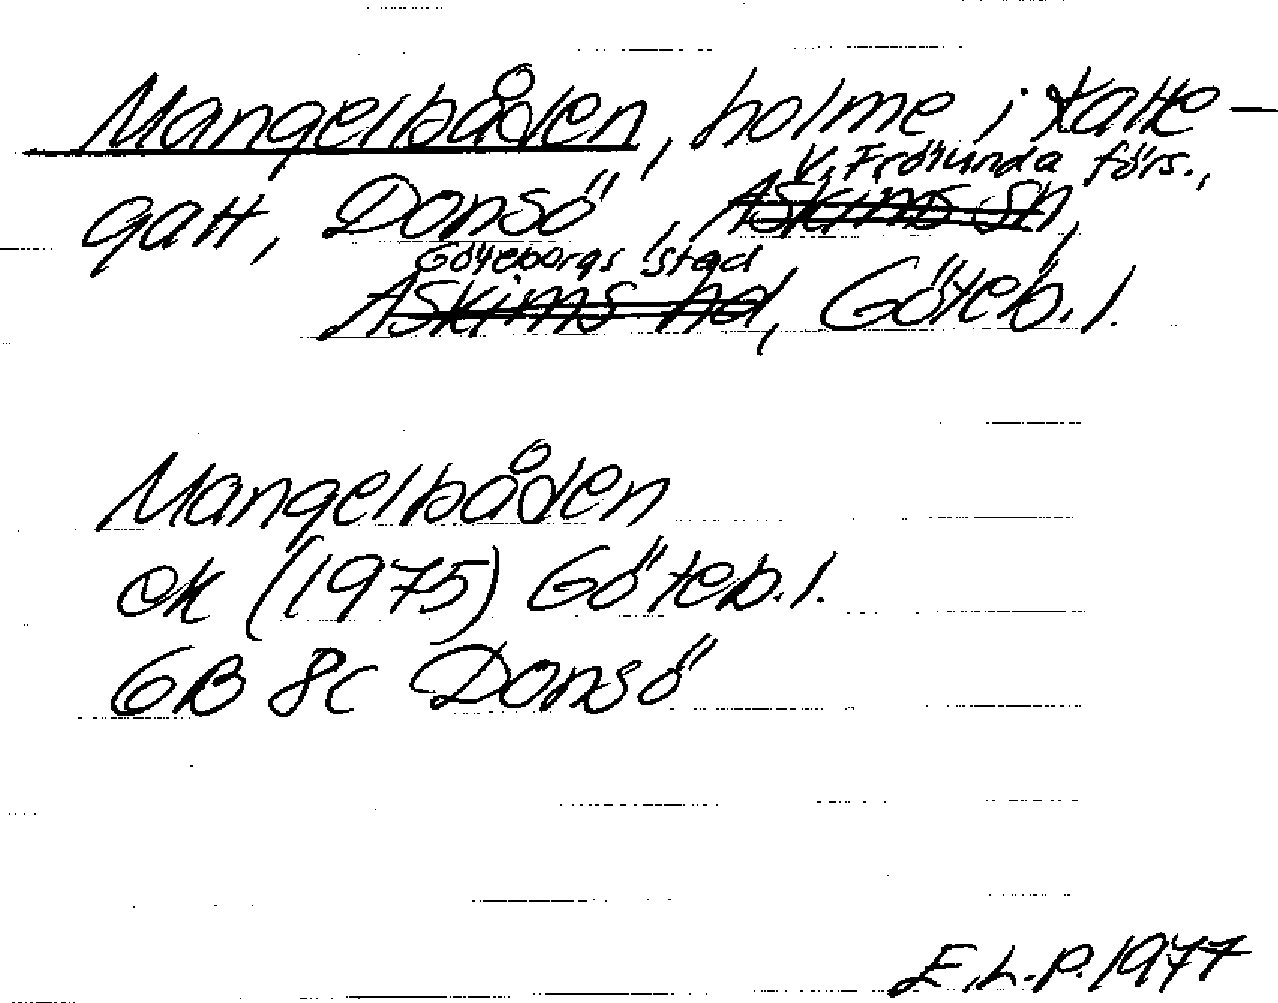 Mangelbåden, holme i Katte-
V. Frölunda förs.,
gatt, Donsö, Askims sn,
Göteborgs stad
Askims hd, Göteb. l.
Mangelbåden
ek (1975) Göteb. l.
6B 8c Donsö
E.L.P. 1977